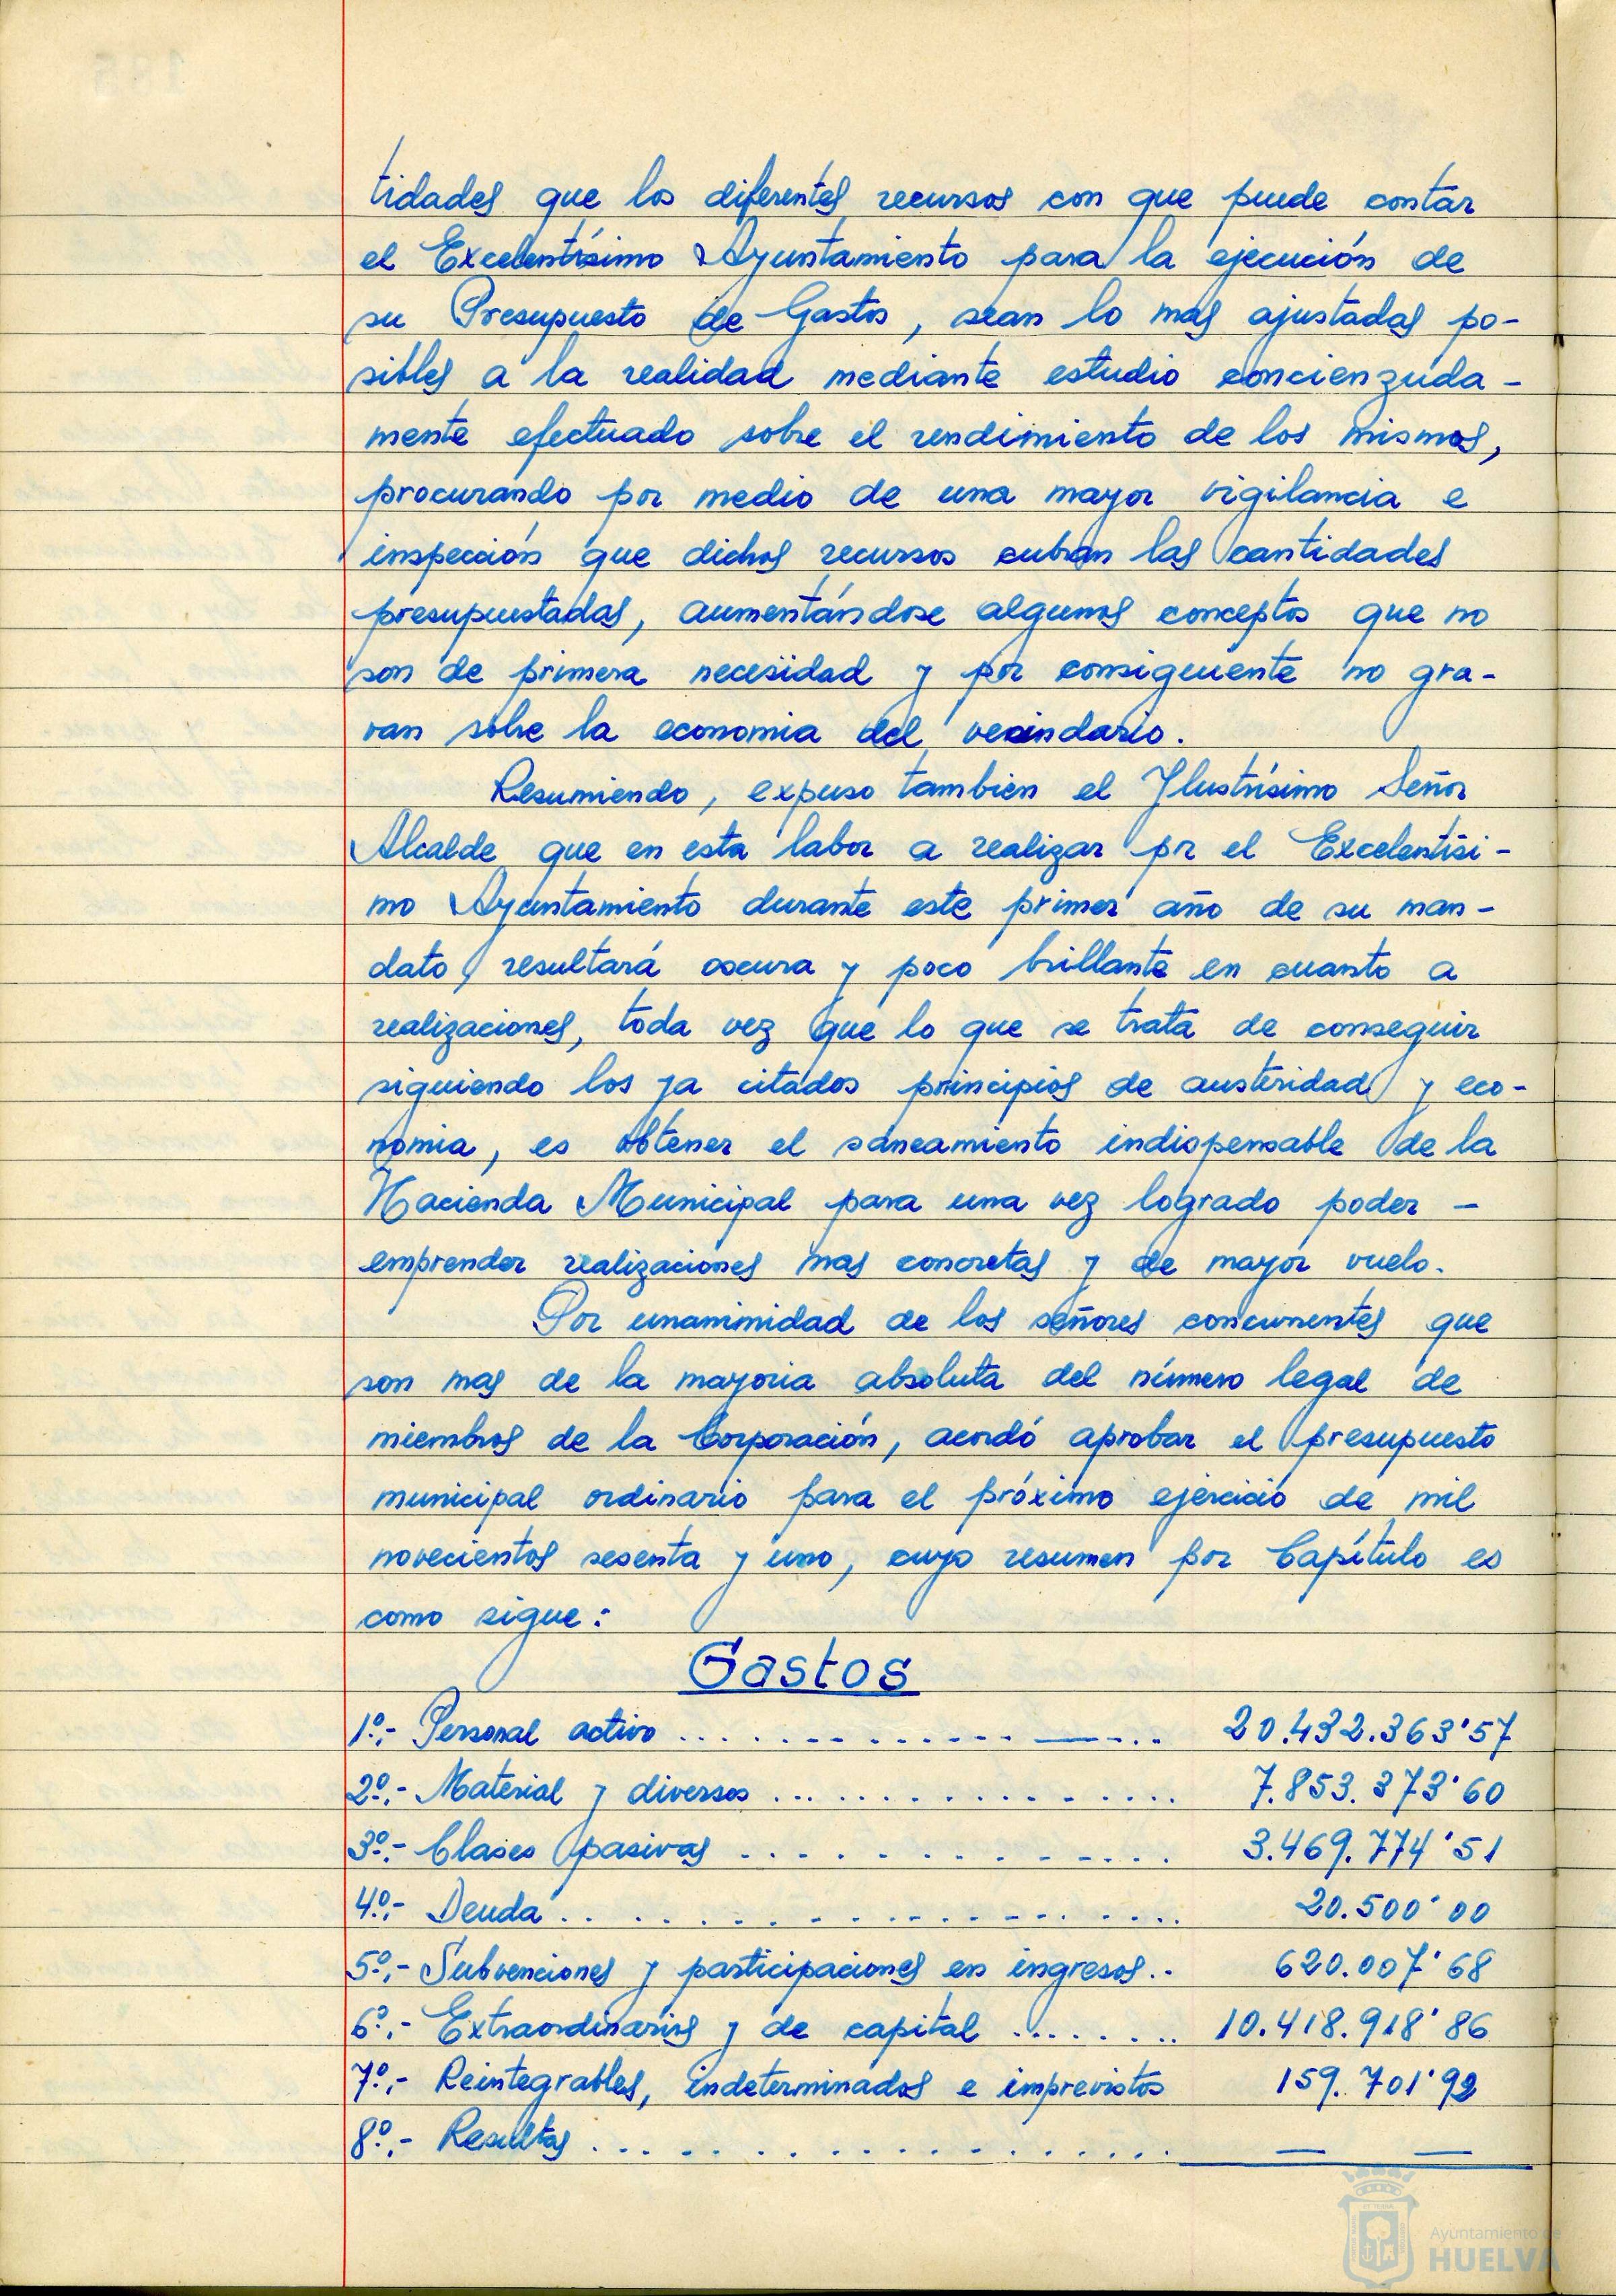 tidades que los diferentes recursos con que puede contar
el Excelentísimo Ayuntamiento para la ejecución de
su Presupuesto de Gastos, sean lo mas ajustadas po-
sibles a la realidad mediante estudio concienzuda-
mente efectuado sobre el rendimiento de los mismos,
procurando por medio de una mayor vigilancia e
inspección que dichos recursos cubran las cantidades
presupuestadas, aumentándose algunos conceptos que no
son de primera necesidad y por consiguiente no gra-
van sobre la economia del vecindario.
Resumiendo, expuso tambien el Ilustrísimo Señor
Alcalde que en esta labor a realizar pr el Excelentísi-
mo Ayuntamiento durante este primer año de su man-
dato, resultará oscura y poco brillante en cuanto a
realizaciones, toda vez que lo que se trata de conseguir
siguiendo los ya citados principios de austeridad y eco-
nomia, es obtener el saneamiento indispensable de la
Hacienda Municipal para una vez logrado poder -
emprender realizaciones mas concretas y de mayor vuelo.
Por unanimidad de los señores concurrentes que
son mas de la mayoria absoluta del número legal de
miembros de la Corporación, acordó aprobar el presupuesto
municipal ordinario para el próximo ejercicio de mil
novecientos sesenta y uno, cuyo resumen por Capítulo es
como sigue:
Gastos
1º.- Personal activo .................... 20.432.363'57
2º.- Material y diversos ................ 7.853.373'60
3º.- Clases pasivas ................ 3.469.774'51
4º.- Deuda .................... 20.500'00
5º.- Subvenciones y participaciones en ingresos.. 620.007'68
6º.- Extraordinarios y de capital ........ 10.418.918'86
7º.- Reintegrables, indeterminados e imprevistos 159.701'92
8º.- Resultas .................... — —
Ayuntamiento de
HUELVA